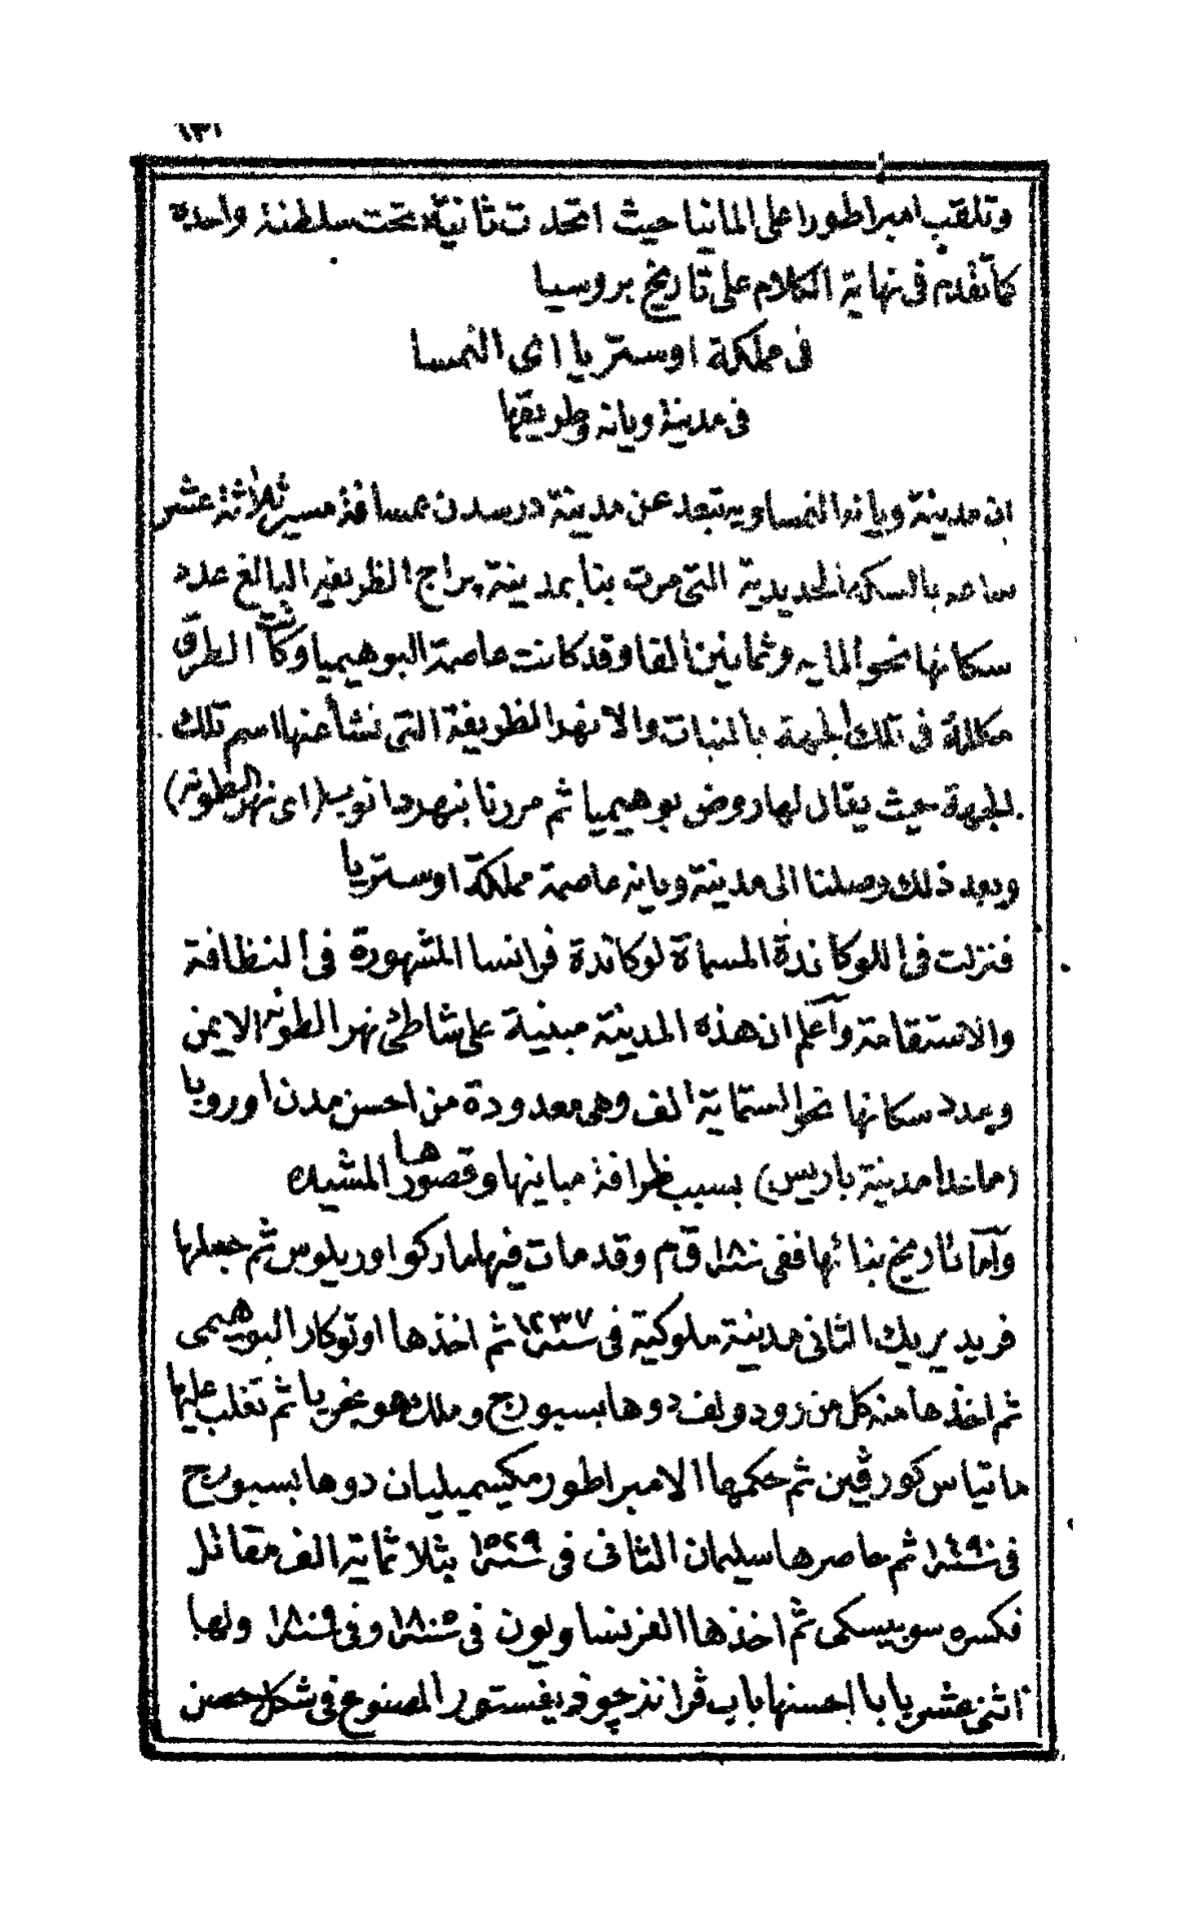 ١٣١
وتلقب امبراطورا على المانيا حيث اتحدت ثانية تحت سلطنة واحدة
كما تقدم فى نهاية الكلام على تاريخ بروسيا
فى مملكة اوستريا اى النمسا
فى مدينة ويانه وطريقها
ان مدينة ويانه النمساويه تبعد عن مدينة درسدن بمسافة مسير ثلاثة عشر
ساعه بالسكة الحديدية التى مرت بنا بمدينة پراج الظريفه البالغ عدد
سكانها نحو المايه وثمانين الفا وقد كانت عاصمة البوهيميا وكانت الطرق
مكللة فى تلك الجهة بالنبات والانهر الظريفة التى نشأ عنها اسم تلك
الجهة حيث يقال لها روض بوهيميا ثم مررنا بنهر دانوب (اى نهر الطونه)
وبعد ذلك وصلنا الى مدينة ويانه عاصمة مملكة اوستريا
فنزلت فى اللوكاندة المسماة لوكاندة فرانسا المشهورة فى النظافة
والاستقامة وأعلم ان هذه المدينة مبنية على شاطئ نهر الطونه الايمن
وعدد سكانها نحو الستماية الف وهى معدودة من احسن مدن اوروپا
(ماخدا مدينة باريس) بسبب ظرافة مبانيها وقصورها المشيده
وأما تاريخ بنائها ففى سنة ١٨٠ ق م وقد مات فيها ماركو اوريلوس ثم جعلها
فريديريك الثانى مدينة ملوكية فى سنة ١٢٣٧ ثم اخذها اوتوكار البوهيمى
ثم اخذها منه كل من رودولف دوهابسبورج وملك هونجريا ثم تغلب عليها
ماتياس كورڤين ثم حكمها الامبراطور مكسيميليان دوهابسبورج
فى سنة ١٤٩٠ ثم حاصرها سليمان الثانى فى سنة ١٥٢٩ بثلاثماية الف مقاتل
فكسره سوبيسكى ثم اخذها الفرنساويون فى سنة ١٨٠٥ وفى سنة ١٨٠٩ ولها
اثنى عشر بابا احسنها باب فرانذ چوذيفستور المصنوع فى شكل حصن